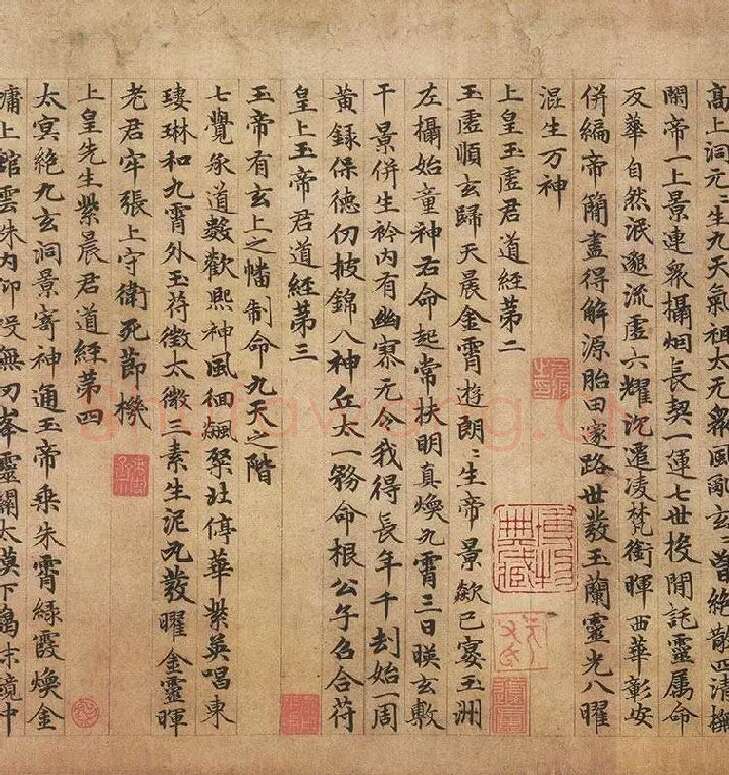 高上洞元〻生九天氣祖太无衆風亂玄〻曾絶散四清撫
開帝一上景連衆攝烟長契一運七世拔開託靈属命
反華自然泯邈流虛六耀沉遷凌梵銜暉西華彰安
併編帝簡盡得解源胎囙邃路世發玉蘭靈光八曜
混生万神
上皇玉虛君道經第二
玉虛順玄歸天晨金霄逰朗〻生帝景歘已宴玉洲
左攝始童神右命起常扶明真煥九霄三日暎玄敷
干景併生衿内有幽寥无令我得長年千刦始一周
黄録保德仞披錦八神丘太一務命根公子名合符
皇上玉帝君道經第三
玉帝有玄上之幡制命九天之階
七覺象道數歡熙神風徊飊聚社停華紫英唱東
瓊琳和九霄外玉苻徵太微三素生泥丸發曜金靈暉
老君牢張上守衛死節機
上皇先生紫晨君道經第四
太冥絶九玄洞景寄神通玉帝乘朱霄緑霞煥金
墉上館雲珠内仰投無刃峯靈闕太漠下藹末境中